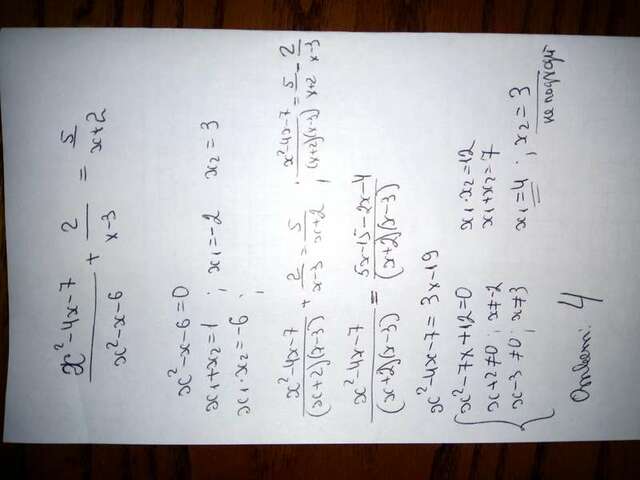 (x²-4x-7)/(x²-x-6) + 2/(x-3) = 5/(x+2)
x²-x-6=0
x₁+x₂=1 ; x₁=-2 x₂=3
x₁·x₂=-6 ;
(x²-4x-7)/((x+2)(x-3)) + 2/(x-3) = 5/(x+2) ; (x²-4x-7)/((x+2)(x-3)) = 5/(x+2) - 2/(x-3)
(x²-4x-7)/((x+2)(x-3)) = (5x-15-2x-4)/((x+2)(x-3))
x²-4x-7=3x-19
x²-7x+12=0 x₁·x₂=12
x+2≠0 ; x≠-2 x₁+x₂=7
x-3≠0 ; x≠3 x₁=4 ; x₂=3
не подходит
Ответ: 4